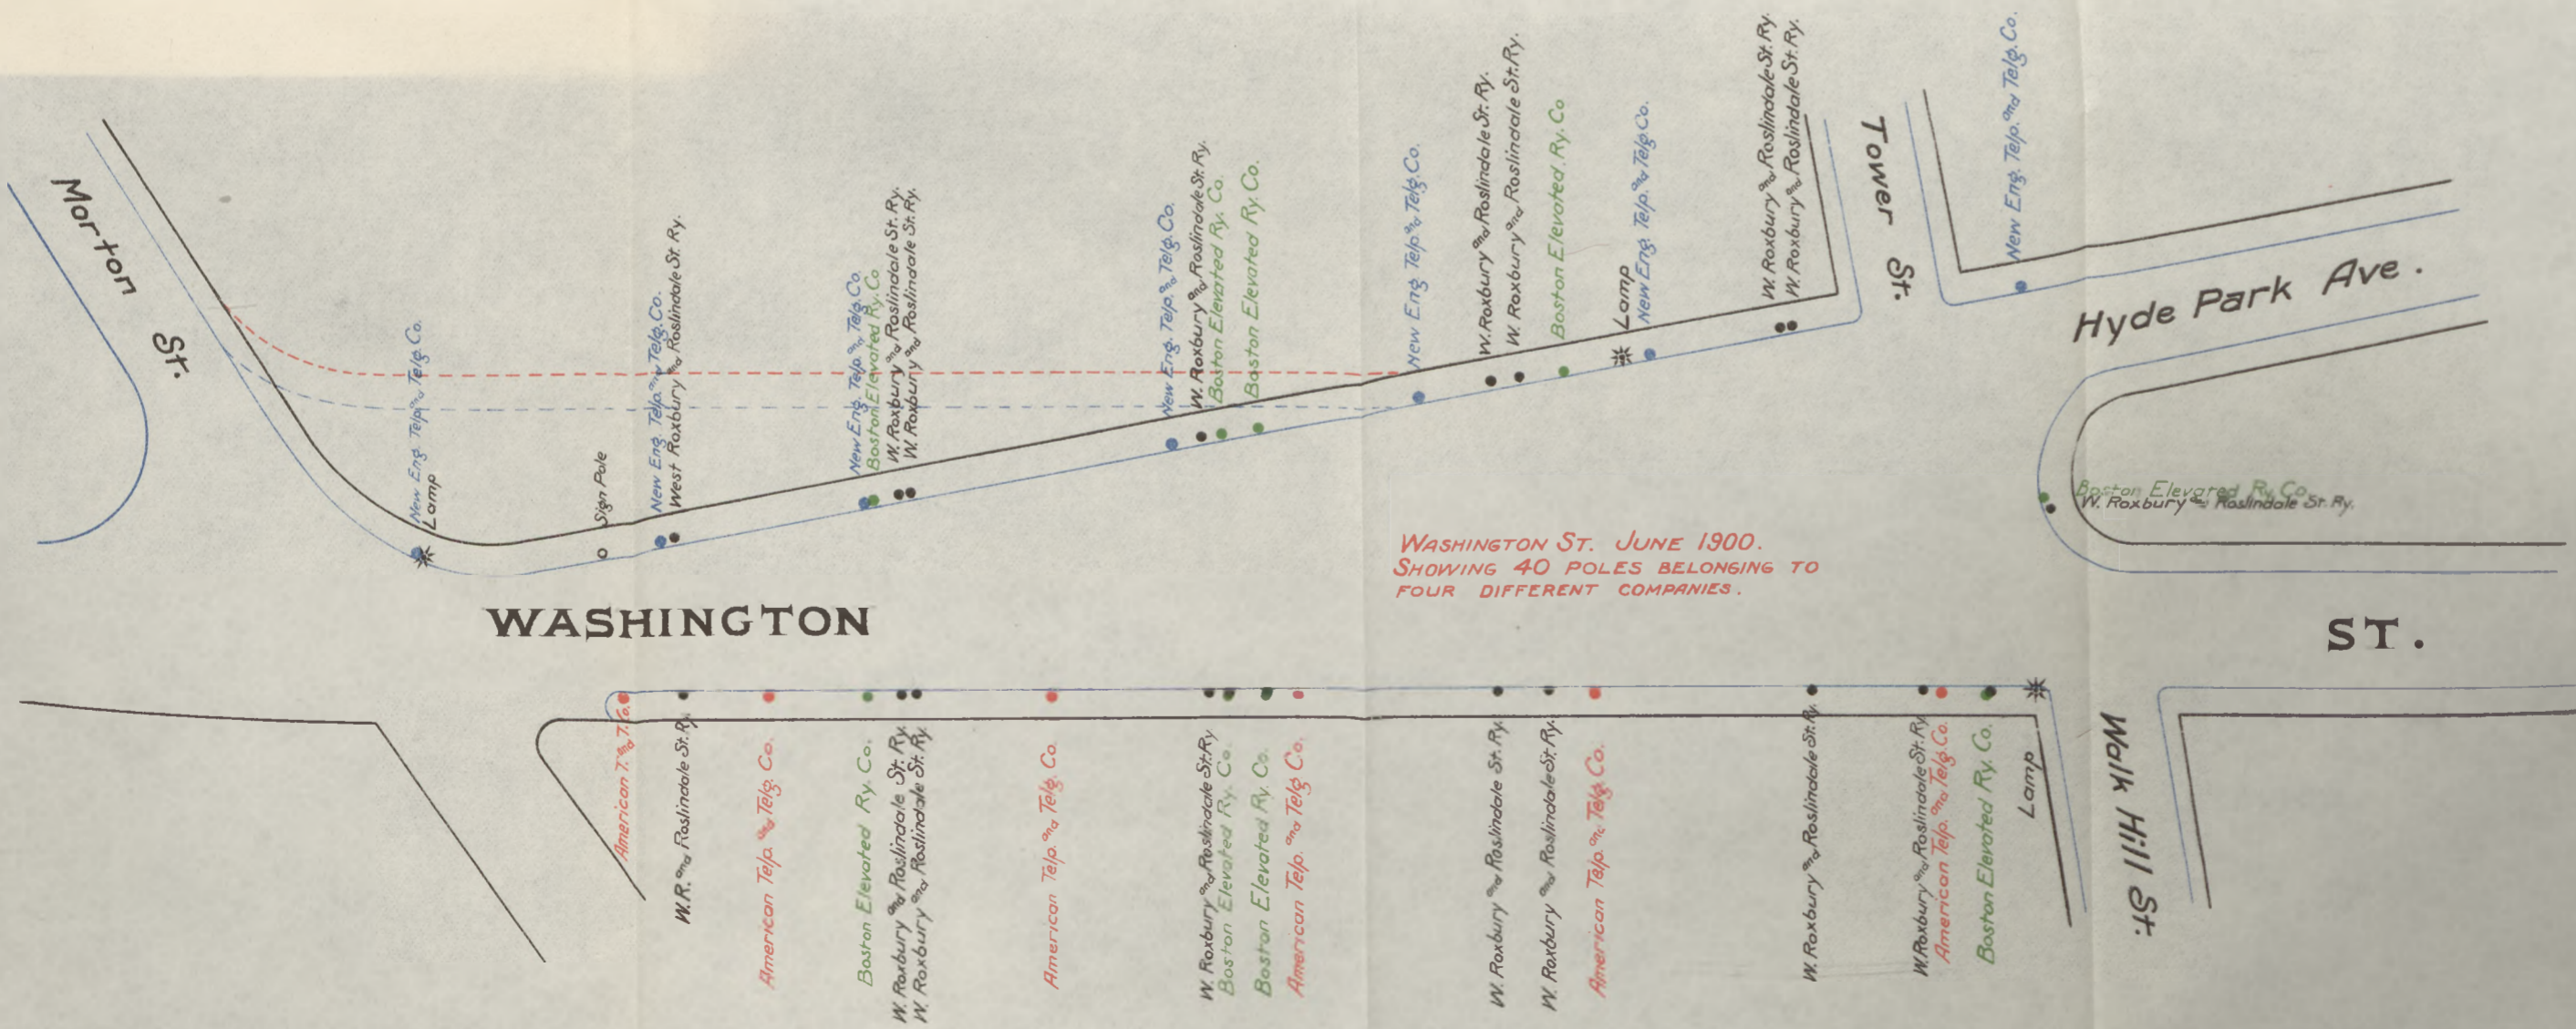 Morton St.
New Eng. Telp. and Telg. Co.
Lamp
Sign Pole
New Eng. Telp. and Telg. Co.
West Roxbury and Roslindale St. Ry.
New Eng. Telp. and Telg. Co.
Boston Elevated Ry. Co
W. Roxbury and Roslindale St. Ry.
W. Roxbury and Roslindale St. Ry.
New Eng. Telp. and Telg. Co.
W. Roxbury and Roslindale St. Ry.
Boston Elevated Ry. Co.
Boston Elevated Ry. Co.
New Eng Telp and Telg. Co.
W. Roxbury and Roslindale St. Ry.
W. Roxbury and Roslindale St. Ry.
Boston Elevated. Ry. Co
Lamp
New Eng. Telp. and Telg. Co.
W. Roxbury and Roslindale St. Ry.
W. Roxbury and Roslindale St. Ry.
Tower St.
New Eng. Telp. and Telg. Co.
Hyde Park Ave.
Boston Elevated Ry. Co.
W. Roxbury and Roslindale St. Ry.
WASHINGTON ST. JUNE 1900.
SHOWING 40 POLES BELONGING TO
FOUR DIFFERENT COMPANIES.
WASHINGTON ST.
American T. and T. Co.
W.R. and Roslindale St. Ry.
American Telp. and Telg. Co.
Boston Elevated Ry. Co.
W. Roxbury and Roslindale St. Ry.
W. Roxbury and Roslindale St. Ry.
American Telp. and Telg. Co.
W. Roxbury and Roslindale St. Ry
Boston Elevated Ry. Co.
Boston Elevated Ry. Co.
American Telp. and Telg Co.
W. Roxbury and Roslindale St. Ry.
W. Roxbury and Roslindale St. Ry.
American Telp. and Telg. Co.
W. Roxbury and Roslindale St. Ry.
W. Roxbury and Roslindale St. Ry.
American Telp. and Telg. Co.
Boston Elevated Ry. Co.
Lamp
Walk Hill St.